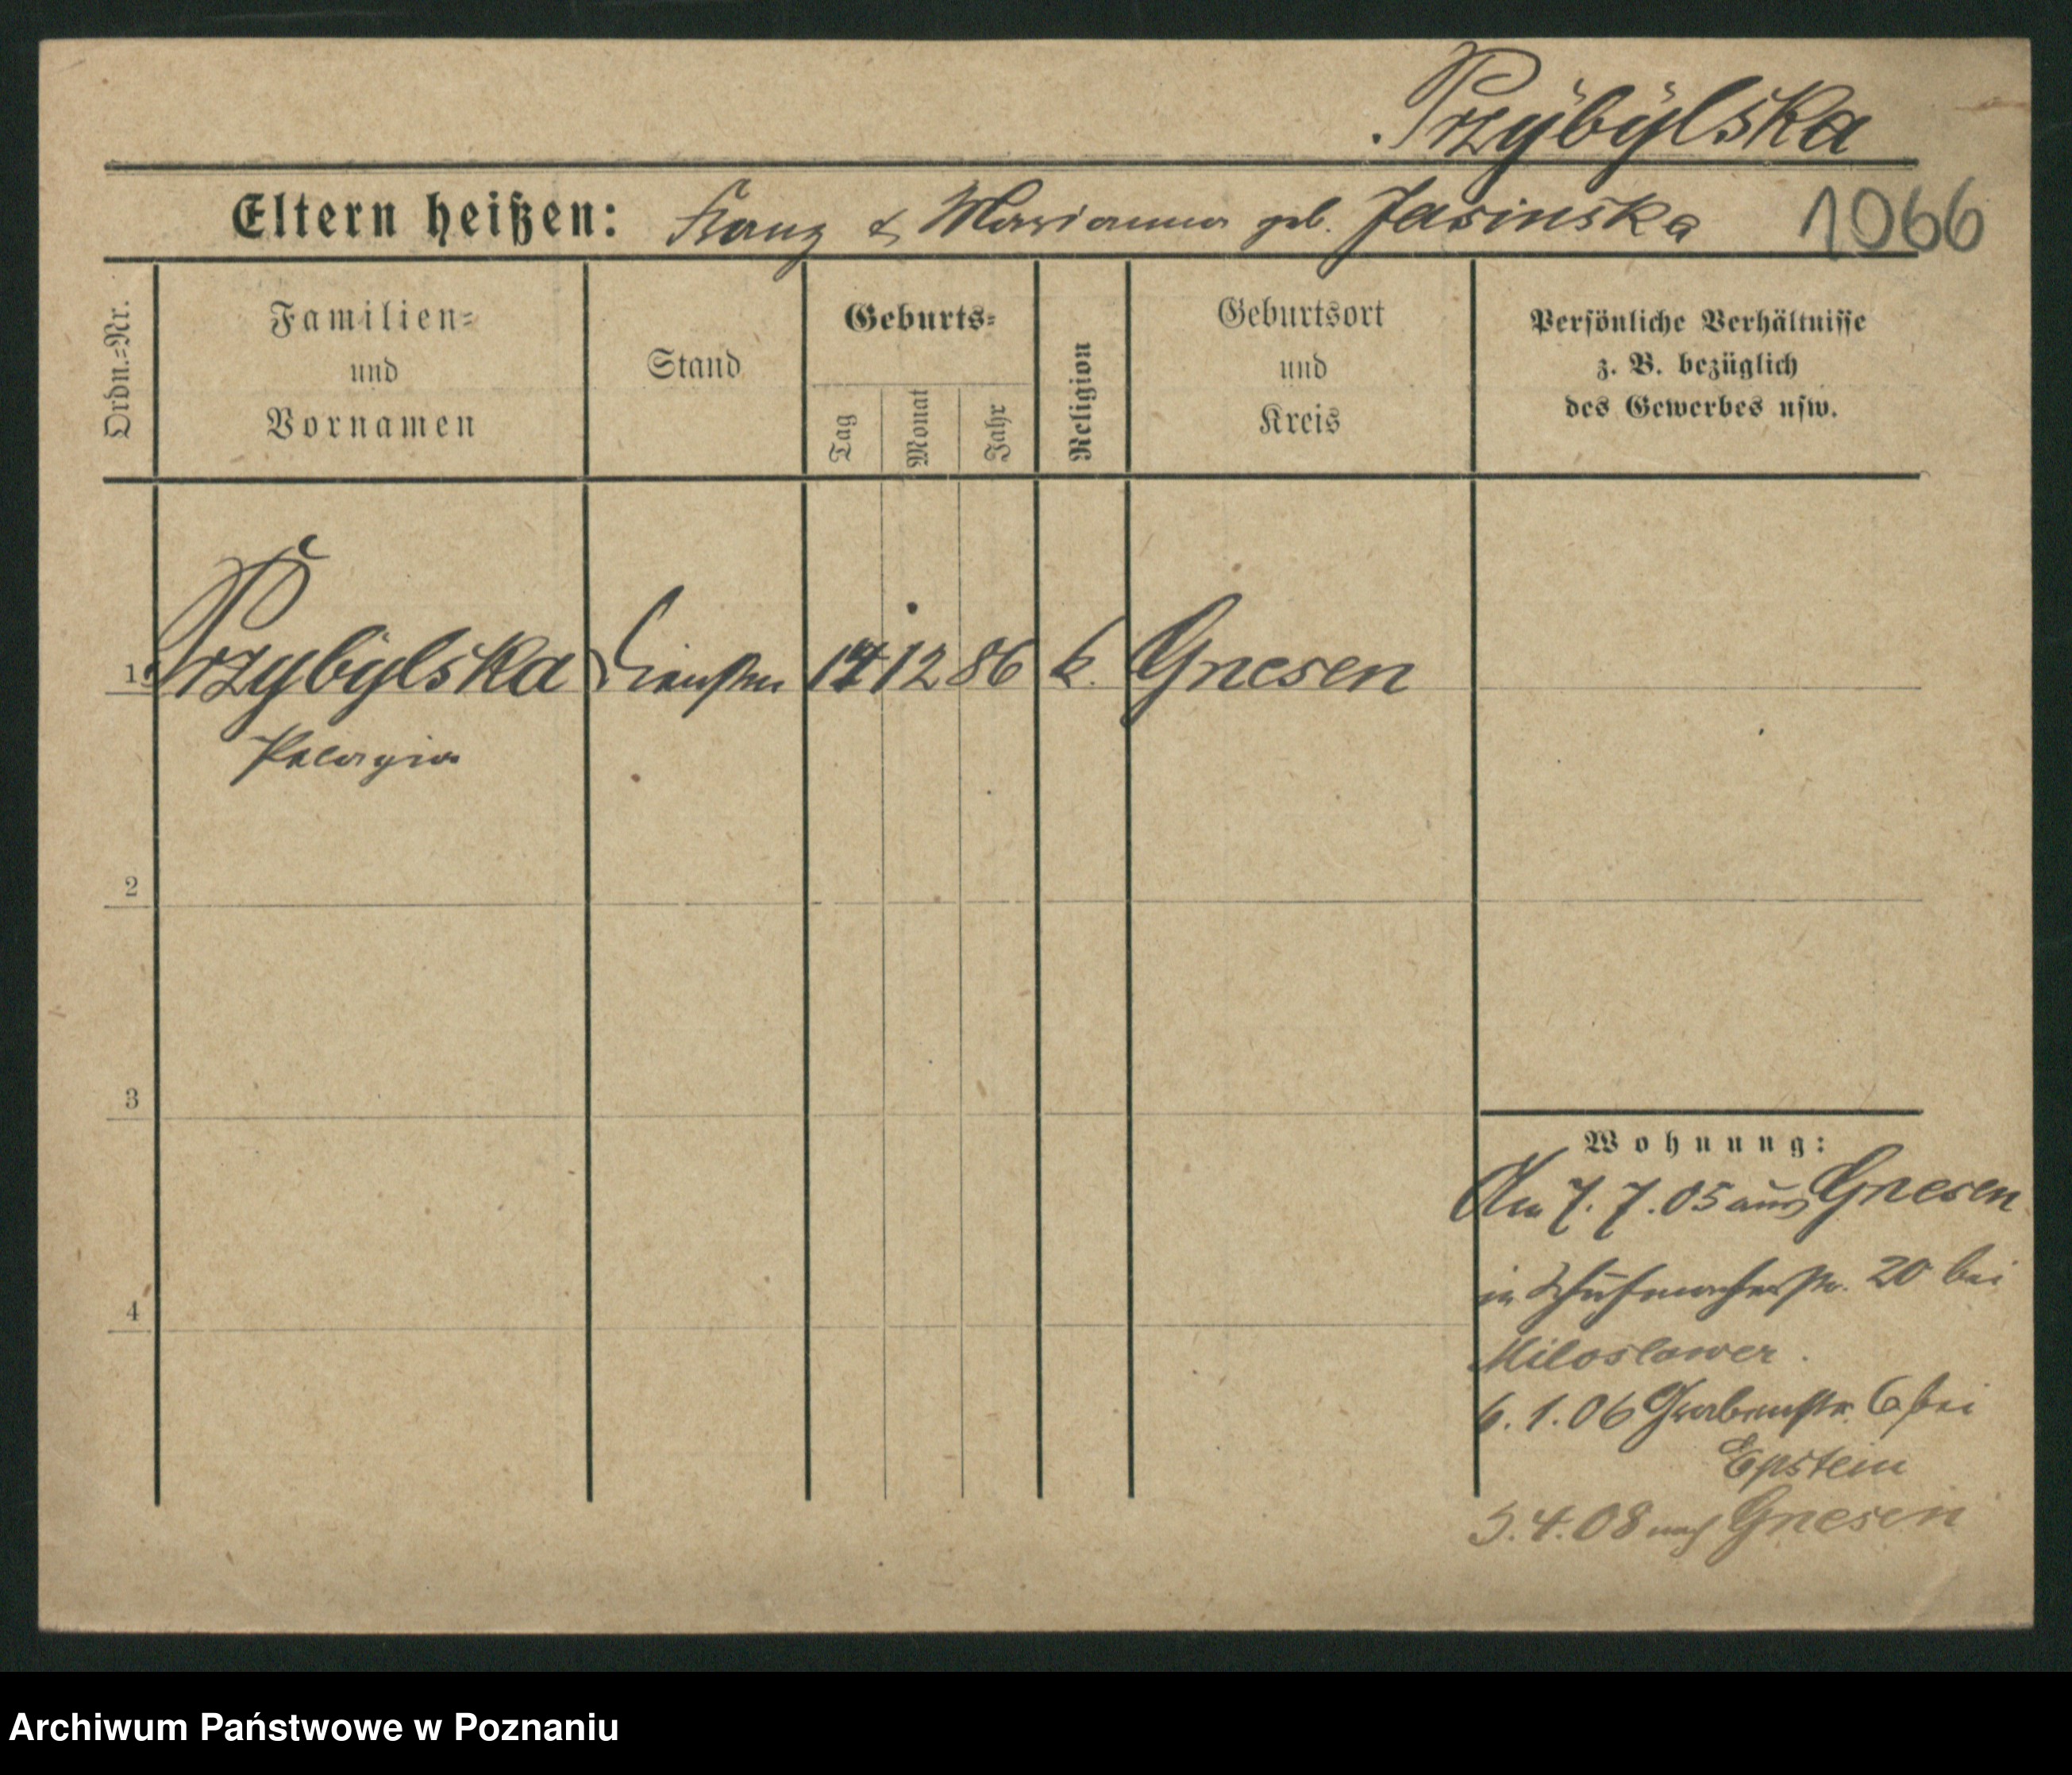 Przybylska
Eltern heißen: Franz & Marianna geb. Jasinska 1066
Ordn.=Nr.
Familien=
und
Vornamen
Stand
Geburts=
Tag
Monat
Jahr
Religion
Geburtsort
und
Kreis
Persönliche Verhältnisse
z. B. bezüglich
des Gewerbes usw.
1 Przybylska 12 86 k. Gnesen
Pelagia
2
3
4
Wohnung:
Am 7. 7. 05 aus Gnesen
in Schuhmacherstr. 20 bei
Miloslawer.
6. 1. 06 Grabenstr. 6 bei
Epstein
3. 4. 08 nach Gnesen
Archiwum Państwowe w Poznaniu